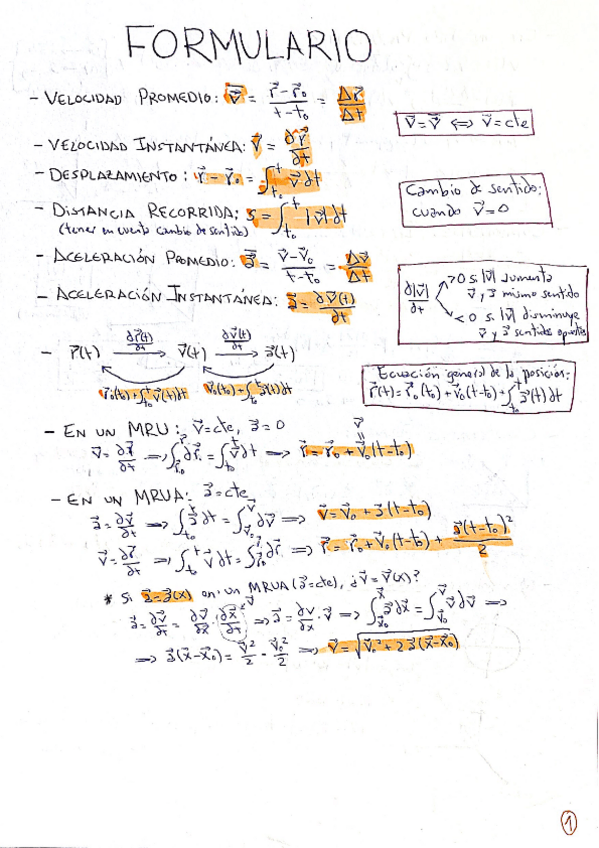 FORMULARIO
- VELOCIDAD PROMEDIO: v̄⃗ = (r⃗ - r⃗₀)/(t - t₀) = Δr⃗/Δt
v⃗ = v̄⃗ ⟺ v⃗ = cte
- VELOCIDAD INSTANTÁNEA: v⃗ = ∂r⃗/∂t
- DESPLAZAMIENTO: r⃗ - r⃗₀ = ∫ₜ₀ᵗ v⃗ ∂t
Cambio de sentido:
cuando v⃗ = 0
- DISTANCIA RECORRIDA: s = ∫ₜ₀ᵗ |v⃗| dt
(tener en cuenta cambio de sentido)
- ACELERACIÓN PROMEDIO: ā⃗ = (v⃗ - v⃗₀)/(t - t₀) = Δv⃗/Δt
- ACELERACIÓN INSTANTÁNEA: a⃗ = ∂v⃗(t)/∂t
∂|v⃗|/∂t
>0 si |v⃗| aumenta
v⃗ y a⃗ mismo sentido
<0 si |v⃗| disminuye
v⃗ y a⃗ sentidos opuestos
- r⃗(t) —∂r⃗(t)/∂t→ v⃗(t) —∂v⃗(t)/∂t→ a⃗(t)
r⃗₀(t₀) + ∫ₜ₀ᵗ v⃗(t) dt
v⃗₀(t₀) + ∫ₜ₀ᵗ a⃗(t) dt
Ecuación general de la posición:
r⃗(t) = r⃗₀(t₀) + v⃗₀(t - t₀) + ∫ₜ₀ᵗ a⃗(t) dt
- EN UN MRU: v⃗ = cte, a⃗ = 0
v⃗ = ∂r⃗/∂t ⟹ ∫ᵣ₀ʳ ∂r⃗ = ∫ₜ₀ᵗ v⃗ ∂t ⟹ r⃗ = r⃗₀ + v⃗₀(t - t₀)
v⃗
=
- EN UN MRUA: a⃗ = cte
a⃗ = ∂v⃗/∂t ⟹ ∫ₜ₀ᵗ a⃗ ∂t = ∫ᵥ₀ᵛ ∂v⃗ ⟹ v⃗ = v⃗₀ + a⃗(t - t₀)
v⃗ = ∂r⃗/∂t ⟹ ∫ₜ₀ᵗ v⃗ ∂t = ∫ᵣ₀ʳ ∂r⃗ ⟹ r⃗ = r⃗₀ + v⃗₀(t - t₀) + a⃗(t - t₀)²/2
* Si a⃗ = a⃗(x) en un MRUA (a⃗ = cte), ¿v⃗ = v⃗(x)?
a⃗ = ∂v⃗/∂t = ∂v⃗/∂x⃗ · ∂x⃗/∂t v⃗ ⟹ a⃗ = ∂v/∂x · v⃗ ⟹ ∫ₓ₀ˣ a⃗ ∂x⃗ = ∫ᵥ₀ᵛ v⃗ ∂v⃗ ⟹
⟹ a⃗(x⃗ - x⃗₀) = v⃗²/2 - v⃗₀²/2 ⟹ v⃗ = √(v⃗₀² + 2a⃗(x⃗ - x⃗₀))
1